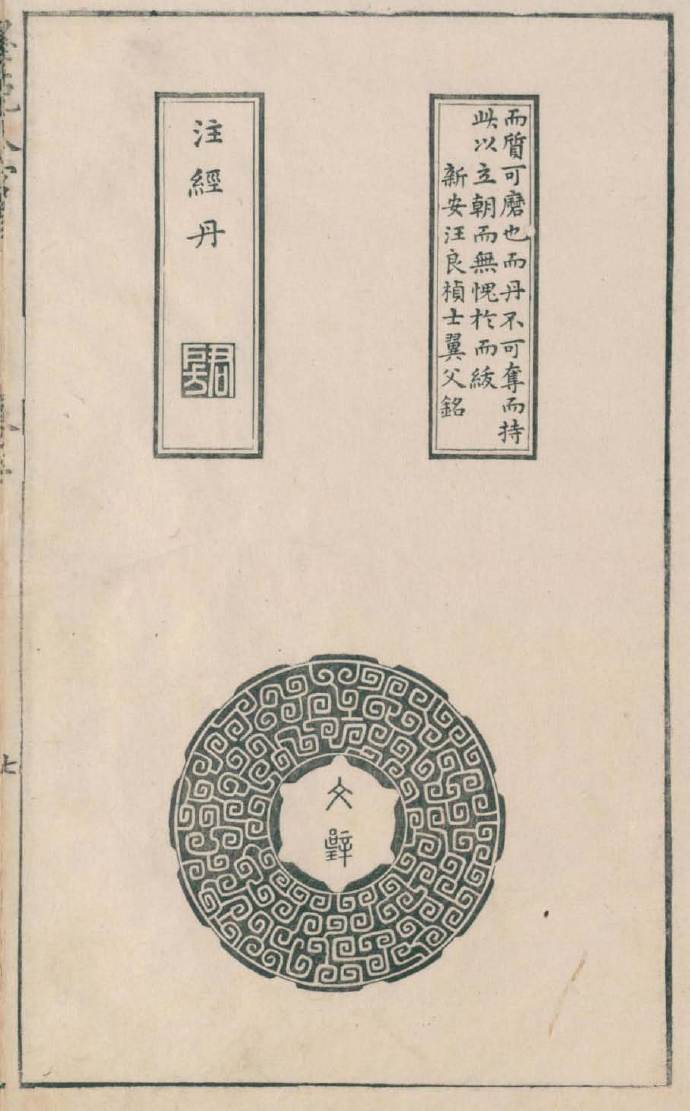 而質可磨也而丹不可奪而持
此以立朝而無愧於而紱
新安汪良楨士翼父銘
注經丹
君房
文璧
七